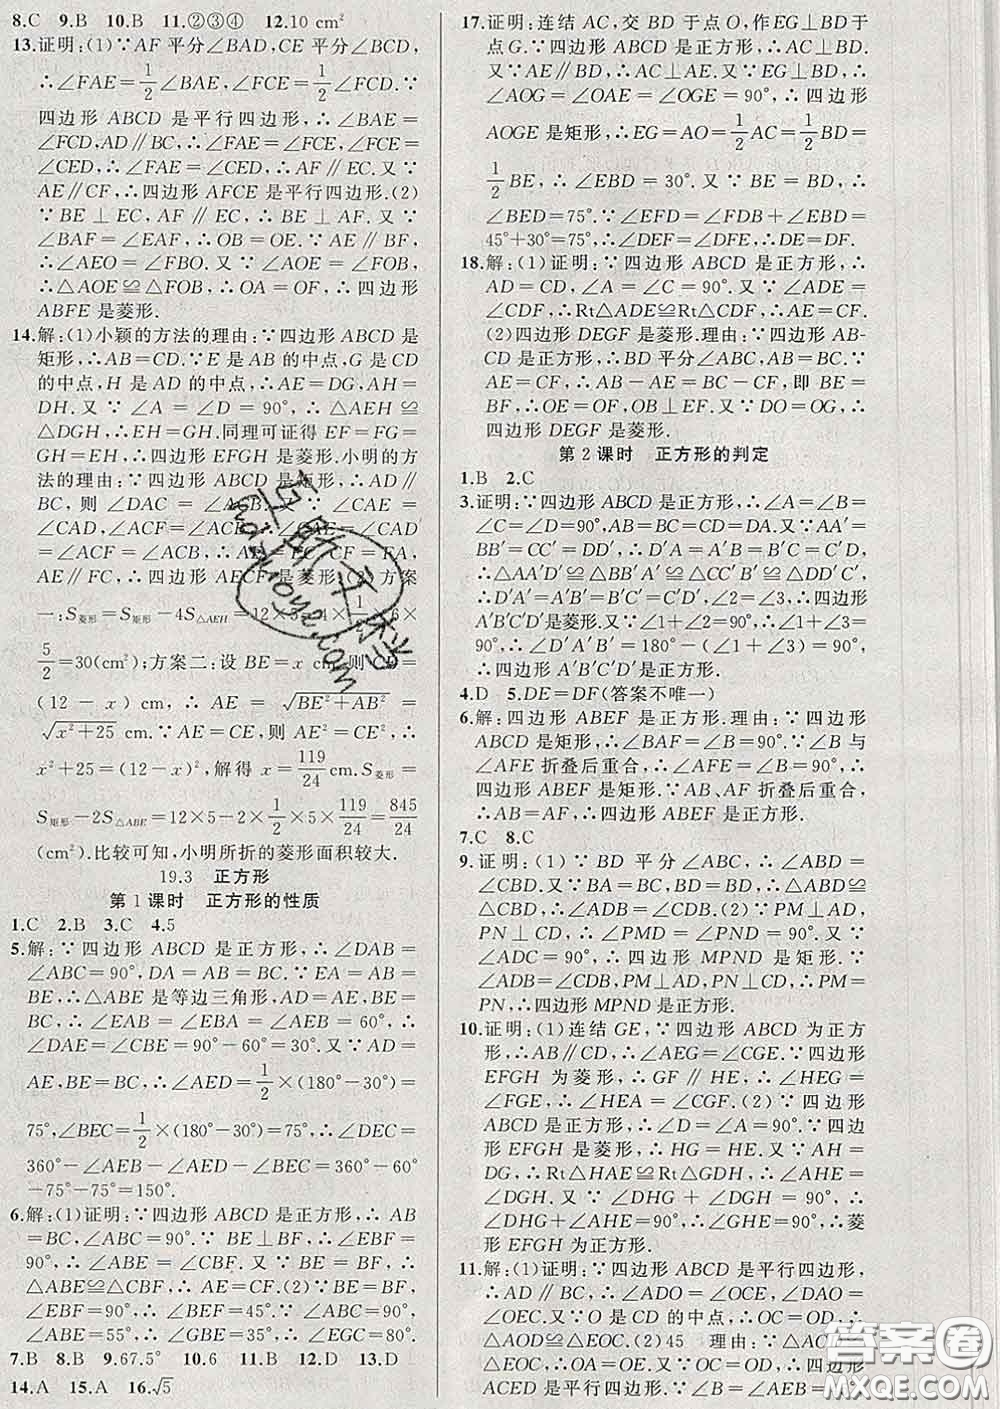 8.C 9.B 10.B 11.②③④ 12.10 cm²
13.证明:(1)∵AF 平分∠BAD,CE 平分∠BCD,
∴∠FAE=1/2∠BAE,∠FCE=1/2∠FCD.∵
四边形 ABCD 是平行四边形,∴∠BAE=
∠FCD,AD∥BC,∴∠FAE=∠FCE,∠FCE
=∠CED,∴∠FAE=∠CED,∴AF∥EC.又∵
AE∥CF,∴四边形 AFCE 是平行四边形.(2)
∵BE⊥EC,AF∥EC,∴BE⊥AF.又∵
∠BAF=∠EAF,∴OB=OE.∵AE∥BF,
∴∠AEO=∠FBO.又∵∠AOE=∠FOB,
∴△AOE≌△FOB,∴OA=OF,∴四边形
ABFE 是菱形.
14.解:(1)小颖的方法的理由:∵四边形 ABCD 是
矩形,∴AB=CD.∵E 是 AB 的中点,G 是 CD
的中点,H 是 AD 的中点,∴AE=DG,AH=
DH.又∵∠A=∠D=90°,∴△AEH≌
△DGH,∴EH=GH.同理可证得 EF=FG=
GH=EH,∴四边形 EFGH 是菱形.小明的方
法的理由:∵四边形 ABCD 是矩形,∴AD∥
BC,则∠DAC=∠ACB.又∵∠CAE=
∠CAD,∠ACF=∠ACB,∴∠CAE=∠CAD
=∠ACF=∠ACB,∴AE=EC=CF=FA,
AE∥FC,∴四边形 AECF 是菱形.(2)方案
一:S菱形=S矩形-4S△AEH=12×5-4×1/2×6×
5/2=30(cm²);方案二:设 BE=x cm,则 CE=
(12-x)cm,∴AE=√(BE²+AB²)=
√(x²+25) cm.∵AE=CE,则 AE²=CE²,∴
x²+25=(12-x)²,解得 x=119/24 cm.S菱形=
S矩形-2S△ABE=12×5-2×1/2×5×119/24=845/24
(cm²).比较可知,小明所折的菱形面积较大.
19.3 正方形
第1课时 正方形的性质
1.C 2.B 3.C 4.5
5.解:∵四边形 ABCD 是正方形,∴∠DAB=
∠ABC=90°,DA=AB=BC.∵EA=AB=
BE,∴△ABE 是等边三角形,AD=AE,BE=
BC,∴∠EAB=∠EBA=∠AEB=60°,∴
∠DAE=∠CBE=90°-60°=30°.又∵AD=
AE,BE=BC,∴∠AED=1/2×(180°-30°)=
75°,∠BEC=1/2×(180°-30°)=75°,∴∠DEC=
360°-∠AEB-∠AED-∠BEC=360°-60°
-75°-75°=150°.
6.解:(1)证明:∵四边形 ABCD 是正方形,∴AB
=BC,∠ABC=90°.∵BE⊥BF,∴∠EBF=
90°,∴∠ABE=∠CBF.又∵BE=BF,
∴△ABE≌△CBF,∴AE=CF.(2)∵BE=BF,
∠EBF=90°,∴∠BEF=45°.∵∠ABC=90°,
∠ABE=55°,∴∠GBE=35°,∴∠EGC=80°.
7.B 8.B 9.67.5° 10.6 11.B 12.D 13.D
14.A 15.A 16.√5
17.证明:连结 AC,交 BD 于点 O,作 EG⊥BD 于
点 G.∵四边形 ABCD 是正方形,∴AC⊥BD.
又∵AE∥BD,∴AC⊥AE.又∵EG⊥BD,∴
∠AOG=∠OAE=∠OGE=90°,∴四边形
AOGE 是矩形,∴EG=AO=1/2AC=1/2BD=
1/2BE,∴∠EBD=30°.又∵BE=BD,∴
∠BED=75°.∵∠EFD=∠FDB+∠EBD=
45°+30°=75°,∴∠DEF=∠DFE,∴DE=DF.
18.解:(1)证明:∵四边形 ABCD 是正方形,∴
AD=CD,∠A=∠C=90°.又∵∠ADE=
∠CDF,∴Rt△ADE≌Rt△CDF,∴AE=CF.
(2)四边形 DEGF 是菱形.理由:∵四边形 AB-
CD 是正方形,∴BD 平分∠ABC,AB=BC.∵
AE=CF,∴AB-AE=BC-CF,即 BE=
BF,∴OE=OF,OB⊥EF.又∵DO=OG,∴
四边形 DEGF 是菱形.
第2课时 正方形的判定
1.B 2.C
3.证明:∵四边形 ABCD 是正方形,∴∠A=∠B=
∠C=∠D=90°,AB=BC=CD=DA.又∵AA′=
BB′=CC′=DD′,∴D′A=A′B=B′C=C′D,
∴△AA′D′≌△BB′A′≌△CC′B′≌△DD′C′,
∴D′A′=A′B′=B′C′=C′D′,∠2=∠3,∴四边形
A′B′C′D′是菱形.又∵∠1+∠2=90°,∴∠1+
∠3=90°,∴∠D′A′B′=180°-(∠1+∠3)=90°,
∴四边形 A′B′C′D′是正方形.
4.D 5.DE=DF(答案不唯一)
6.解:四边形 ABEF 是正方形.理由:∵四边形
ABCD 是矩形,∴∠BAF=∠B=90°.∵∠B 与
∠AFE 折叠后重合,∴∠AFE=∠B=90°,∴
四边形 ABEF 是矩形.∵AB、AF 折叠后重合,
∴AB=AF,∴四边形 ABEF 是正方形.
7.C 8.C
9.证明:(1)∵BD 平分∠ABC,∴∠ABD=
∠CBD.又∵BA=BC,BD=BD,∴△ABD≌
△CBD,∴∠ADB=∠CDB.(2)∵PM⊥AD,
PN⊥CD,∴∠PMD=∠PND=90°.又∵
∠ADC=90°,∴四边形 MPND 是矩形.∵
∠ADB=∠CDB,PM⊥AD,PN⊥CD,∴PM=
PN,∴四边形 MPND 是正方形.
10.证明:(1)连结 GE,∵四边形 ABCD 为正方
形,∴AB∥CD,∴∠AEG=∠CGE.∵四边形
EFGH 为菱形,∴GF∥HE,∴∠HEG=
∠FGE,∴∠HEA=∠CGF.(2)∵四边形
ABCD 是正方形,∴∠D=∠A=90°.∵四边形
EFGH 是菱形,∴HG=HE.又∵AH=
DG,∴Rt△HAE≌Rt△GDH,∴∠AHE=
∠DGH.又∵∠DHG+∠DGH=90°,∴
∠DHG+∠AHE=90°,∴∠GHE=90°,∴菱
形 EFGH 为正方形.
11.解:(1)证明:∵四边形 ABCD 是平行四边形,
∴AD∥BC,∴∠ADO=∠OCE,∠DAO=
∠OEC.又∵O 是 CD 的中点,∴OC=OD,∴
△AOD≌△EOC.(2)45 理由:∵△AOD≌
△EOC,∴OA=OE.又∵OC=OD,∴四边形
ACED 是平行四边形.∵∠B=∠AEB=
答案圈
MXQE.COM